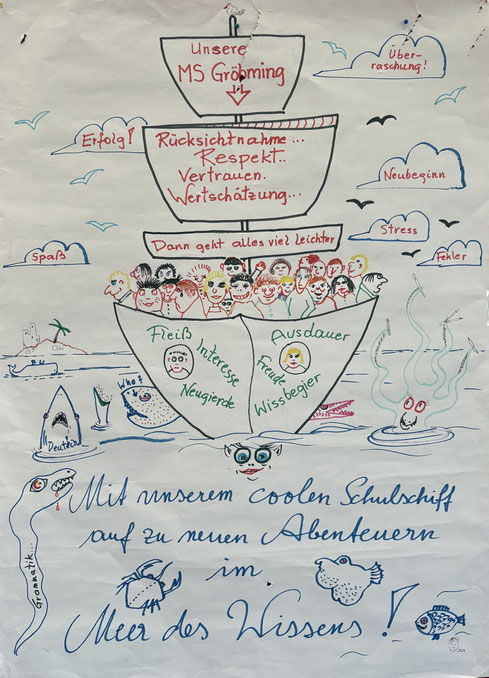 Unsere
MS Gröbming
Über-
raschung!
Erfolg!
Rücksichtnahme...
Respekt..
Vertrauen.
Wertschätzung...
Neubeginn
Stress
Fehler
Spaß
Dann geht alles viel leichter
Fleiß
Interesse
Neugierde
Ausdauer
Freude
Wissbegier
Deutsch
Grammatik...
Mit unserem coolen Schulschiff
auf zu neuen Abenteuern
im
Meer des Wissens!